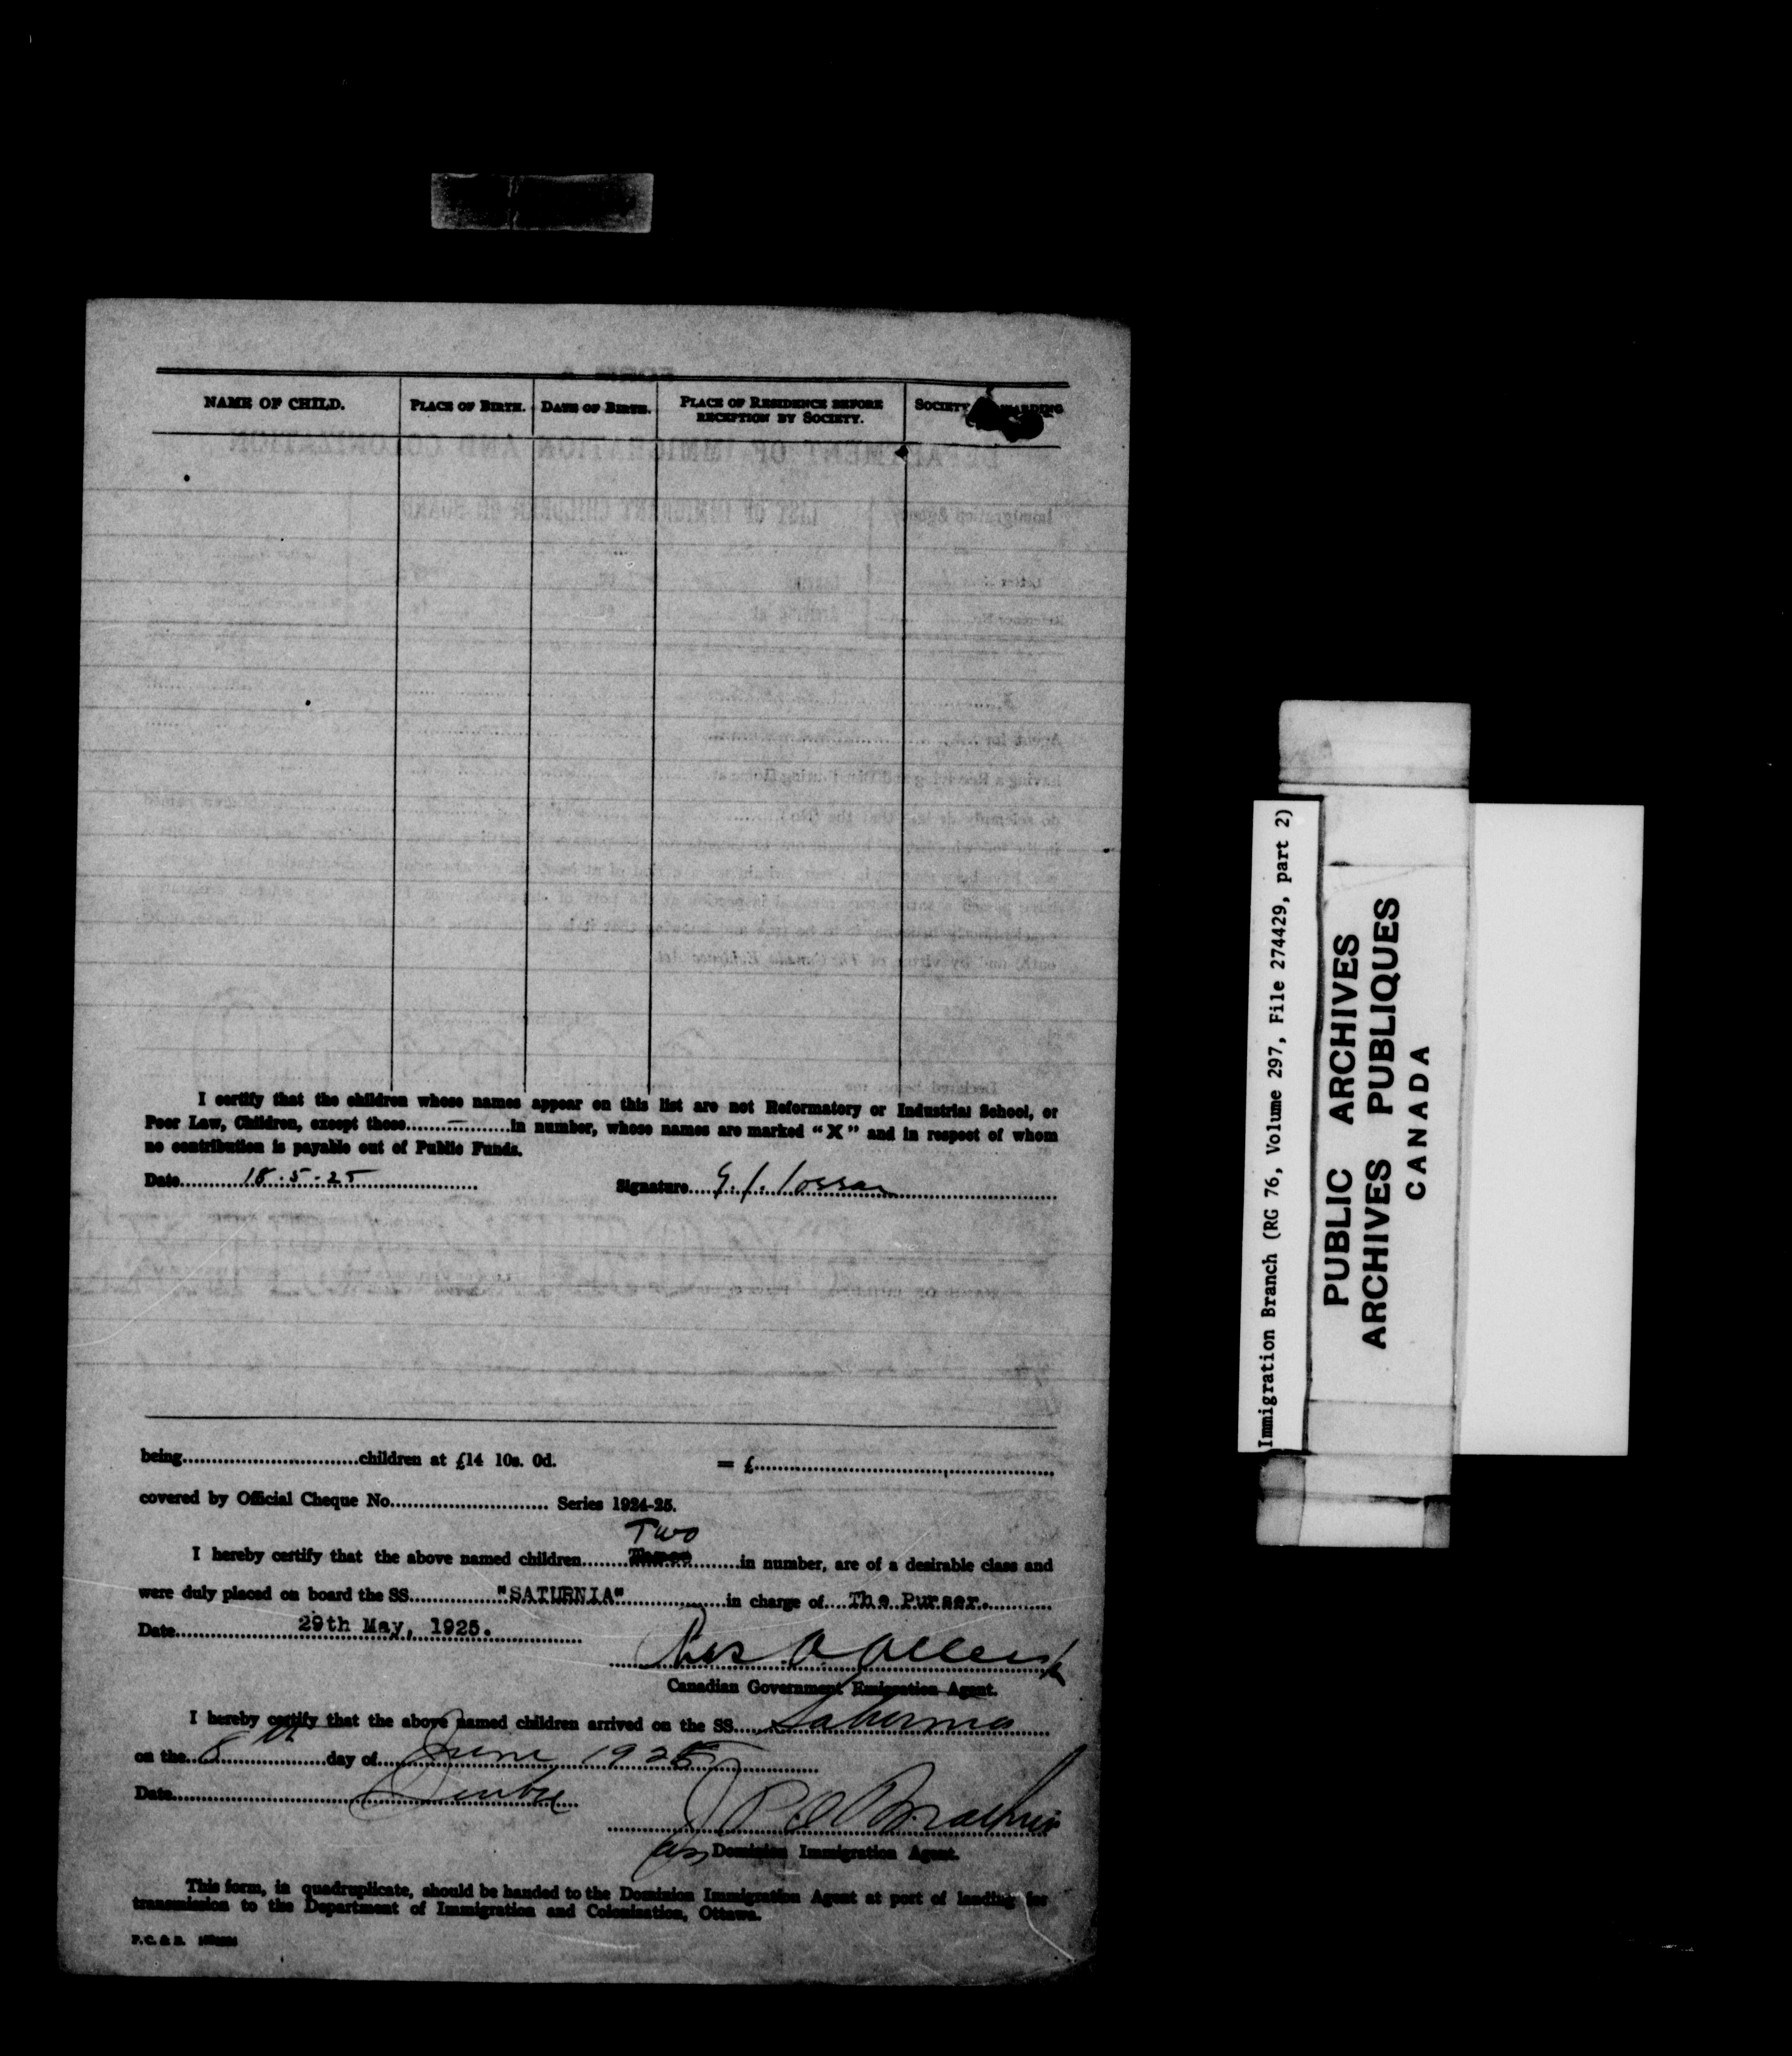 NAME OF CHILD. PLACE OF BIRTH. DATE OF BIRTH. PLACE OF RESIDENCE BEFORE RECEPTION BY SOCIETY. SOCIETY
I certify that the children whose names appear on this list are not Reformatory or Industrial School, or
Poor Law, Children, except those.........—.........in number, whose names are marked "X" and in respect of whom
no contribution is payable out of Public Funds.
Date 18.5.25 Signature G. J.
being children at £14 10s. 0d. = £
covered by Official Cheque No. Series 1924-25.
Two
I hereby certify that the above named children Three in number, are of a desirable class and
were duly placed on board the SS. "SATURNIA" in charge of The Purser.
Date 29th May, 1925.
Canadian Government Emigration Agent.
I hereby certify that the above named children arrived on the SS. Saturnia
on the 8th day of June 1925
Date
Dominion Immigration Agent.
This form, in quadruplicate, should be handed to the Dominion Immigration Agent at port of landing for
transmission to the Department of Immigration and Colonization, Ottawa.
F.C. & B.
Immigration Branch (RG 76, Volume 297, File 274429, part 2)
PUBLIC ARCHIVES
ARCHIVES PUBLIQUES
CANADA